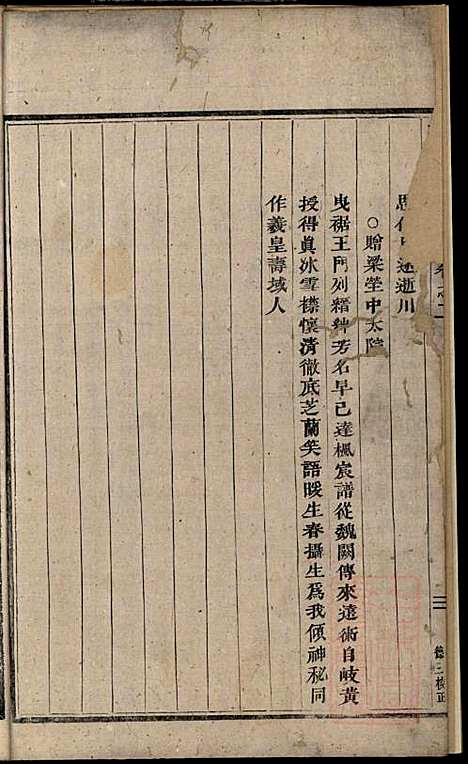 逝川
○贈梁瑩中太院
曳裾王門列縉紳芳名早已達楓宸譜從魏闕傳來遠術自岐黃
授得眞冰雪襟懷清徹底芝蘭笑語暖生春攝生爲我傾神秘同
作羲皇壽域人
二
德三校正